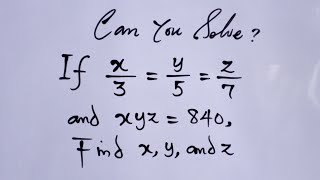 Can You Solve?
If x/3 = y/5 = z/7
and xyz = 840,
Find x, y, and z